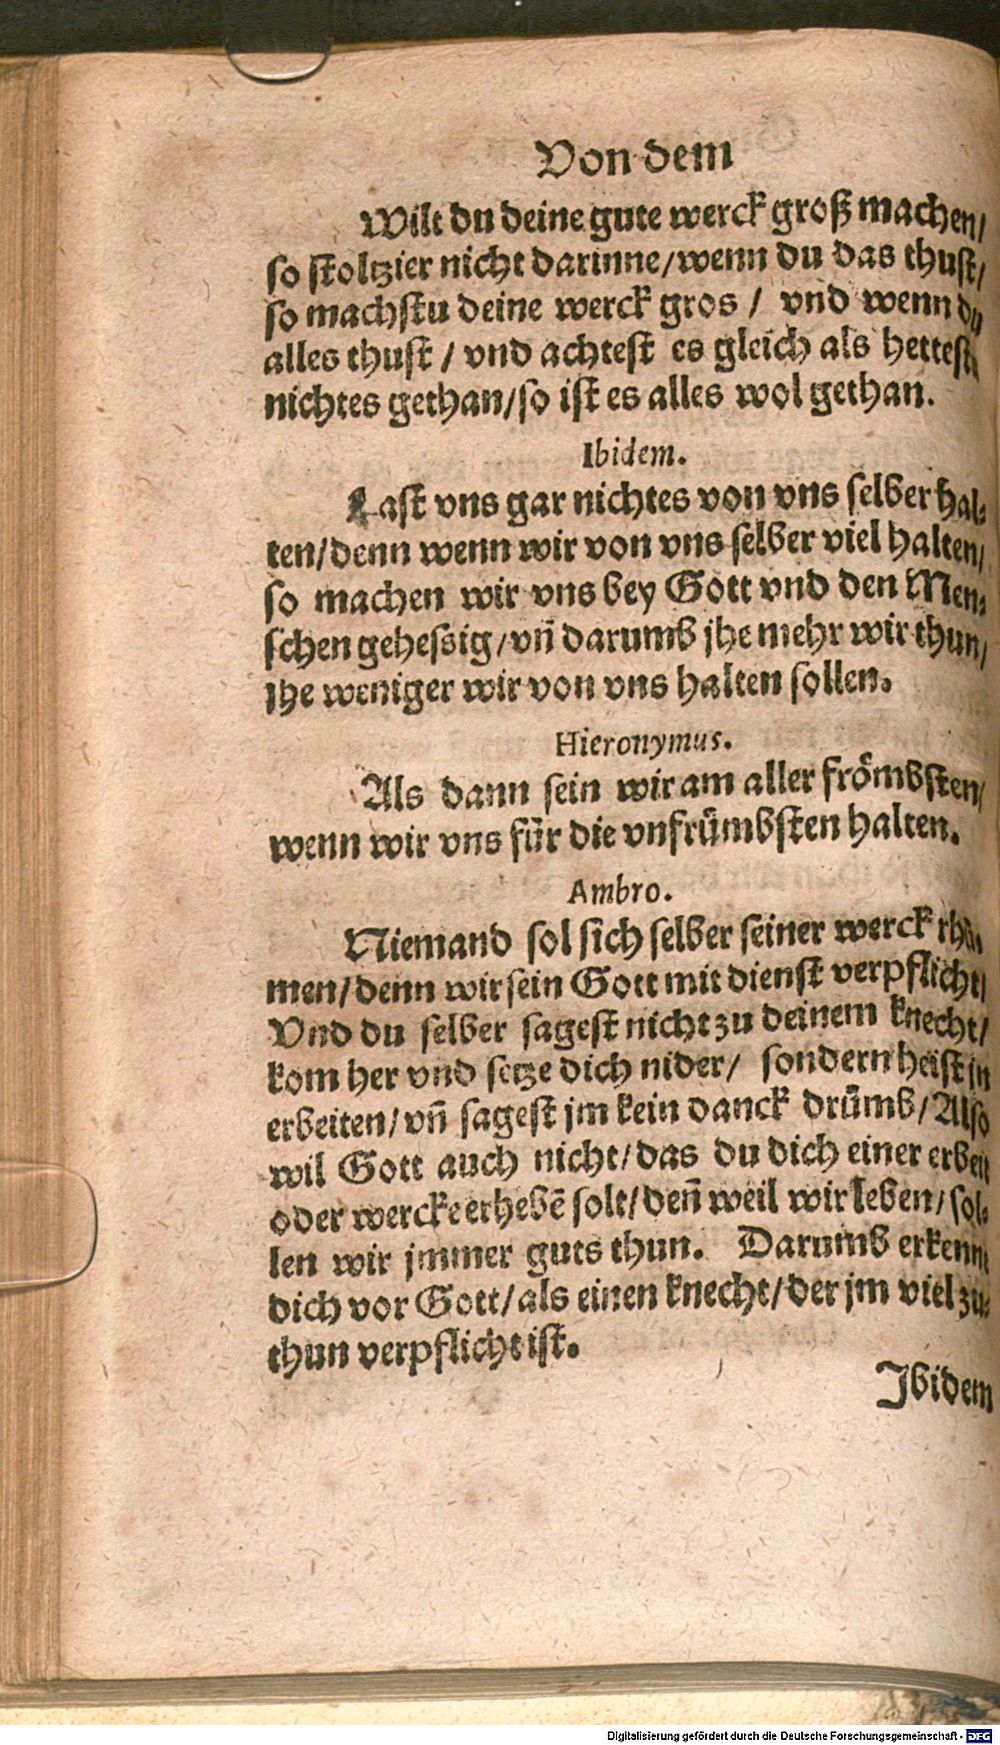 Von dem
Wilt du deine gute werck groß machen/
so stoltzier nicht darinne/wenn du das thust/
so machstu deine werck gros / vnd wenn du
alles thust / vnd achtest es gleich als hettest
nichtes gethan/so ist es alles wol gethan.
Ibidem.
Last vns gar nichtes von vns selber hal⸗
ten/denn wenn wir von vns selber viel halten/
so machen wir vns bey Gott vnd den Men⸗
schen gehessig/vn̄ darumb jhe mehr wir thun/
jhe weniger wir von vns halten sollen.
Hieronymus.
Als dann sein wir am aller frömbsten/
wenn wir vns für die vnfrümbsten halten.
Ambro.
Niemand sol sich selber seiner werck rhü⸗
men/denn wir sein Gott mit dienst verpflicht/
Vnd du selber sagest nicht zu deinem knecht/
kom her vnd setze dich nider/ sondern heist jn
erbeiten/vn̄ sagest jm kein danck drümb/Also
wil Gott auch nicht/das du dich einer erbeit
oder wercke erhebē solt/den̄ weil wir leben/sol⸗
len wir jmmer guts thun. Darumb erkenne
dich vor Gott/als einen knecht/der jm viel zu⸗
thun verpflicht ist.
Ibidem
Digitalisierung gefördert durch die Deutsche Forschungsgemeinschaft - DFG